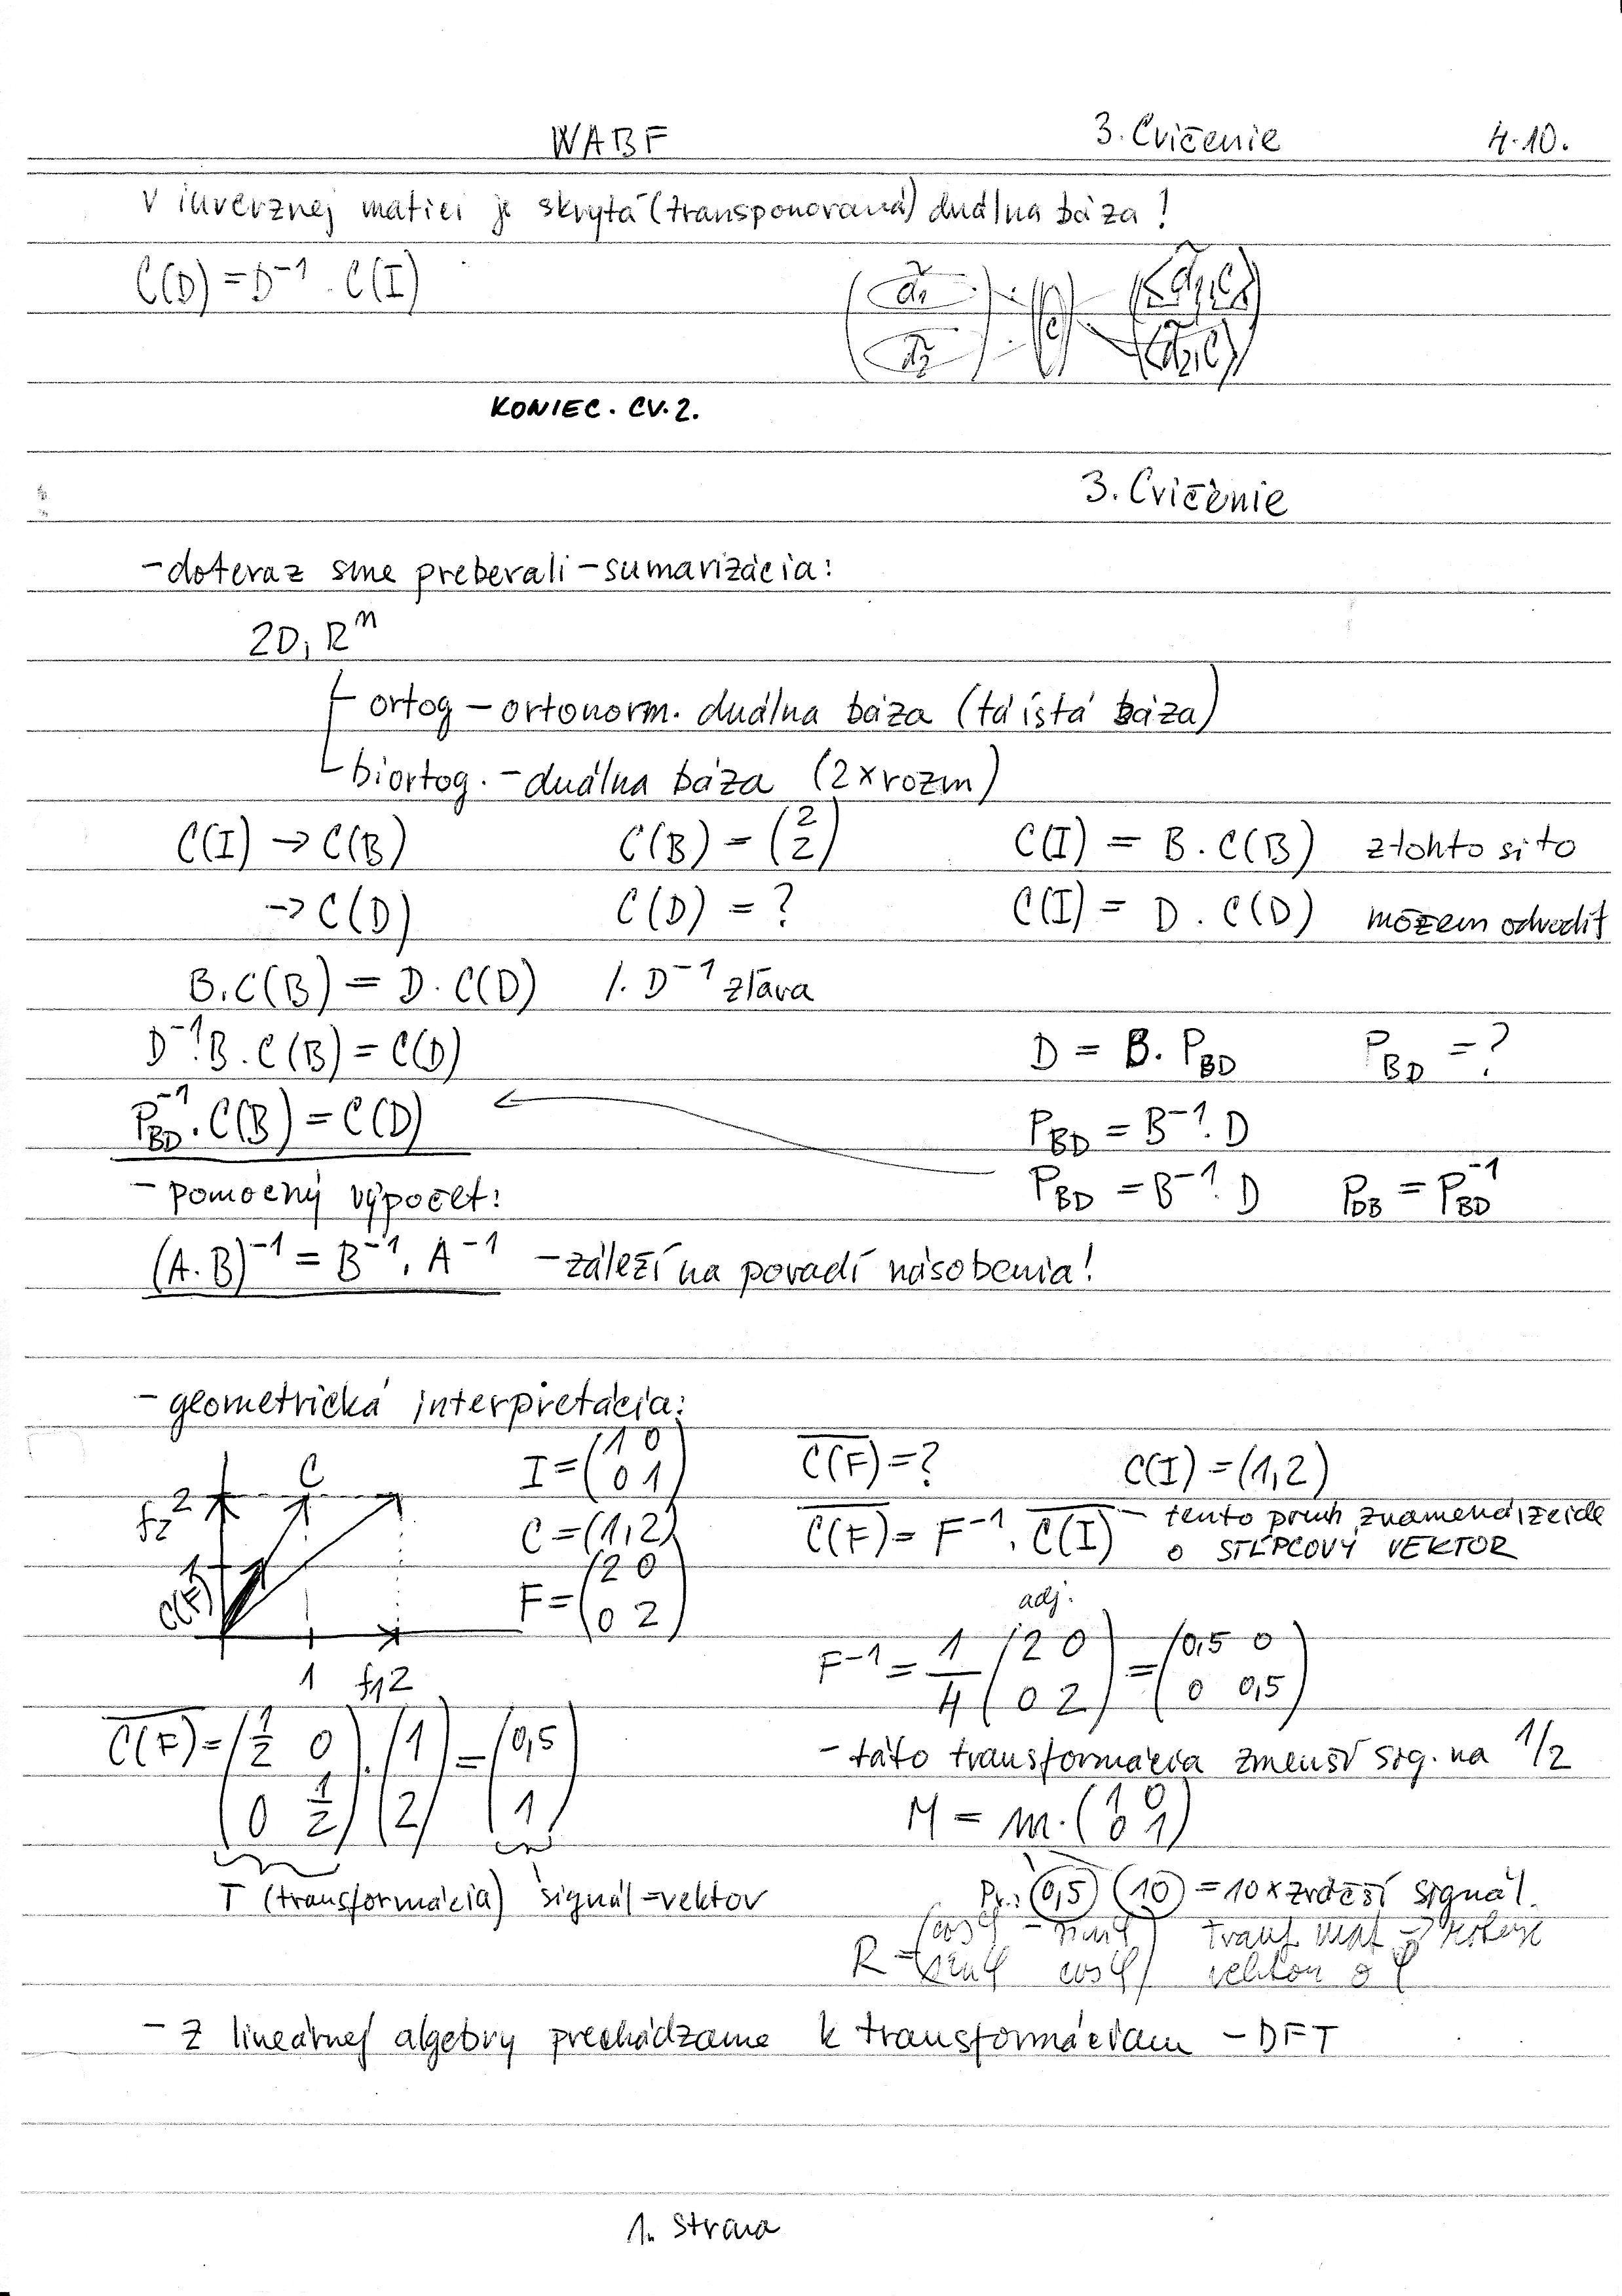 WABF 3. Cvičenie 4.10.
V inverznej matici je skrytá (transponovaná) duálna báza!
C(D) = D⁻¹ . C(I) (d̃₁ / d̃₂) . (c) (⟨d̃₁,c⟩ / ⟨d̃₂,c⟩)
KONIEC. CV. 2.
3. Cvičenie
- doteraz sme preberali - sumarizácia:
2D, Rⁿ
ortog - ortonorm. duálna báza (tá istá báza)
biortog. - duálna báza (2x rozm)
C(I) → C(B) C(B) = (2 / 2) C(I) = B . C(B) z tohto si to
→ C(D) C(D) = ? C(I) = D . C(D) môžem odvodiť
B . C(B) = D . C(D) /. D⁻¹ zľava
D⁻¹ . B . C(B) = C(D) D = B . P_BD P_BD = ?
P_BD⁻¹ . C(B) = C(D) P_BD = B⁻¹ . D
- pomocný výpočet: P_BD = B⁻¹ . D P_DB = P_BD⁻¹
(A . B)⁻¹ = B⁻¹ . A⁻¹ - záleží na poradí násobenia!
- geometrická interpretácia:
C f₂ 2 1 C(F) 1 f₁ 2
I = (1 0 / 0 1) C(F) = ? C(I) = (1,2)
C = (1,2) C(F) = F⁻¹ . C(I) - tento pruh znamená, že ide
o STĹPCOVÝ VEKTOR
F = (2 0 / 0 2) adj.
F⁻¹ = 1/4 (2 0 / 0 2) = (0,5 0 / 0 0,5)
C(F) = (1/2 0 / 0 1/2) . (1 / 2) = (0,5 / 1) - táto transformácia zmenší sig. na 1/2
M = m . (1 0 / 0 1)
T (transformácia) signál = vektor Pr.: (0,5) (10) = 10 x zväčší signál.
R = (cos φ - sin φ / sin φ cos φ) transf. mat →
vektor o φ
- z lineárnej algebry prechádzame k transformáciam - DFT
1. strana